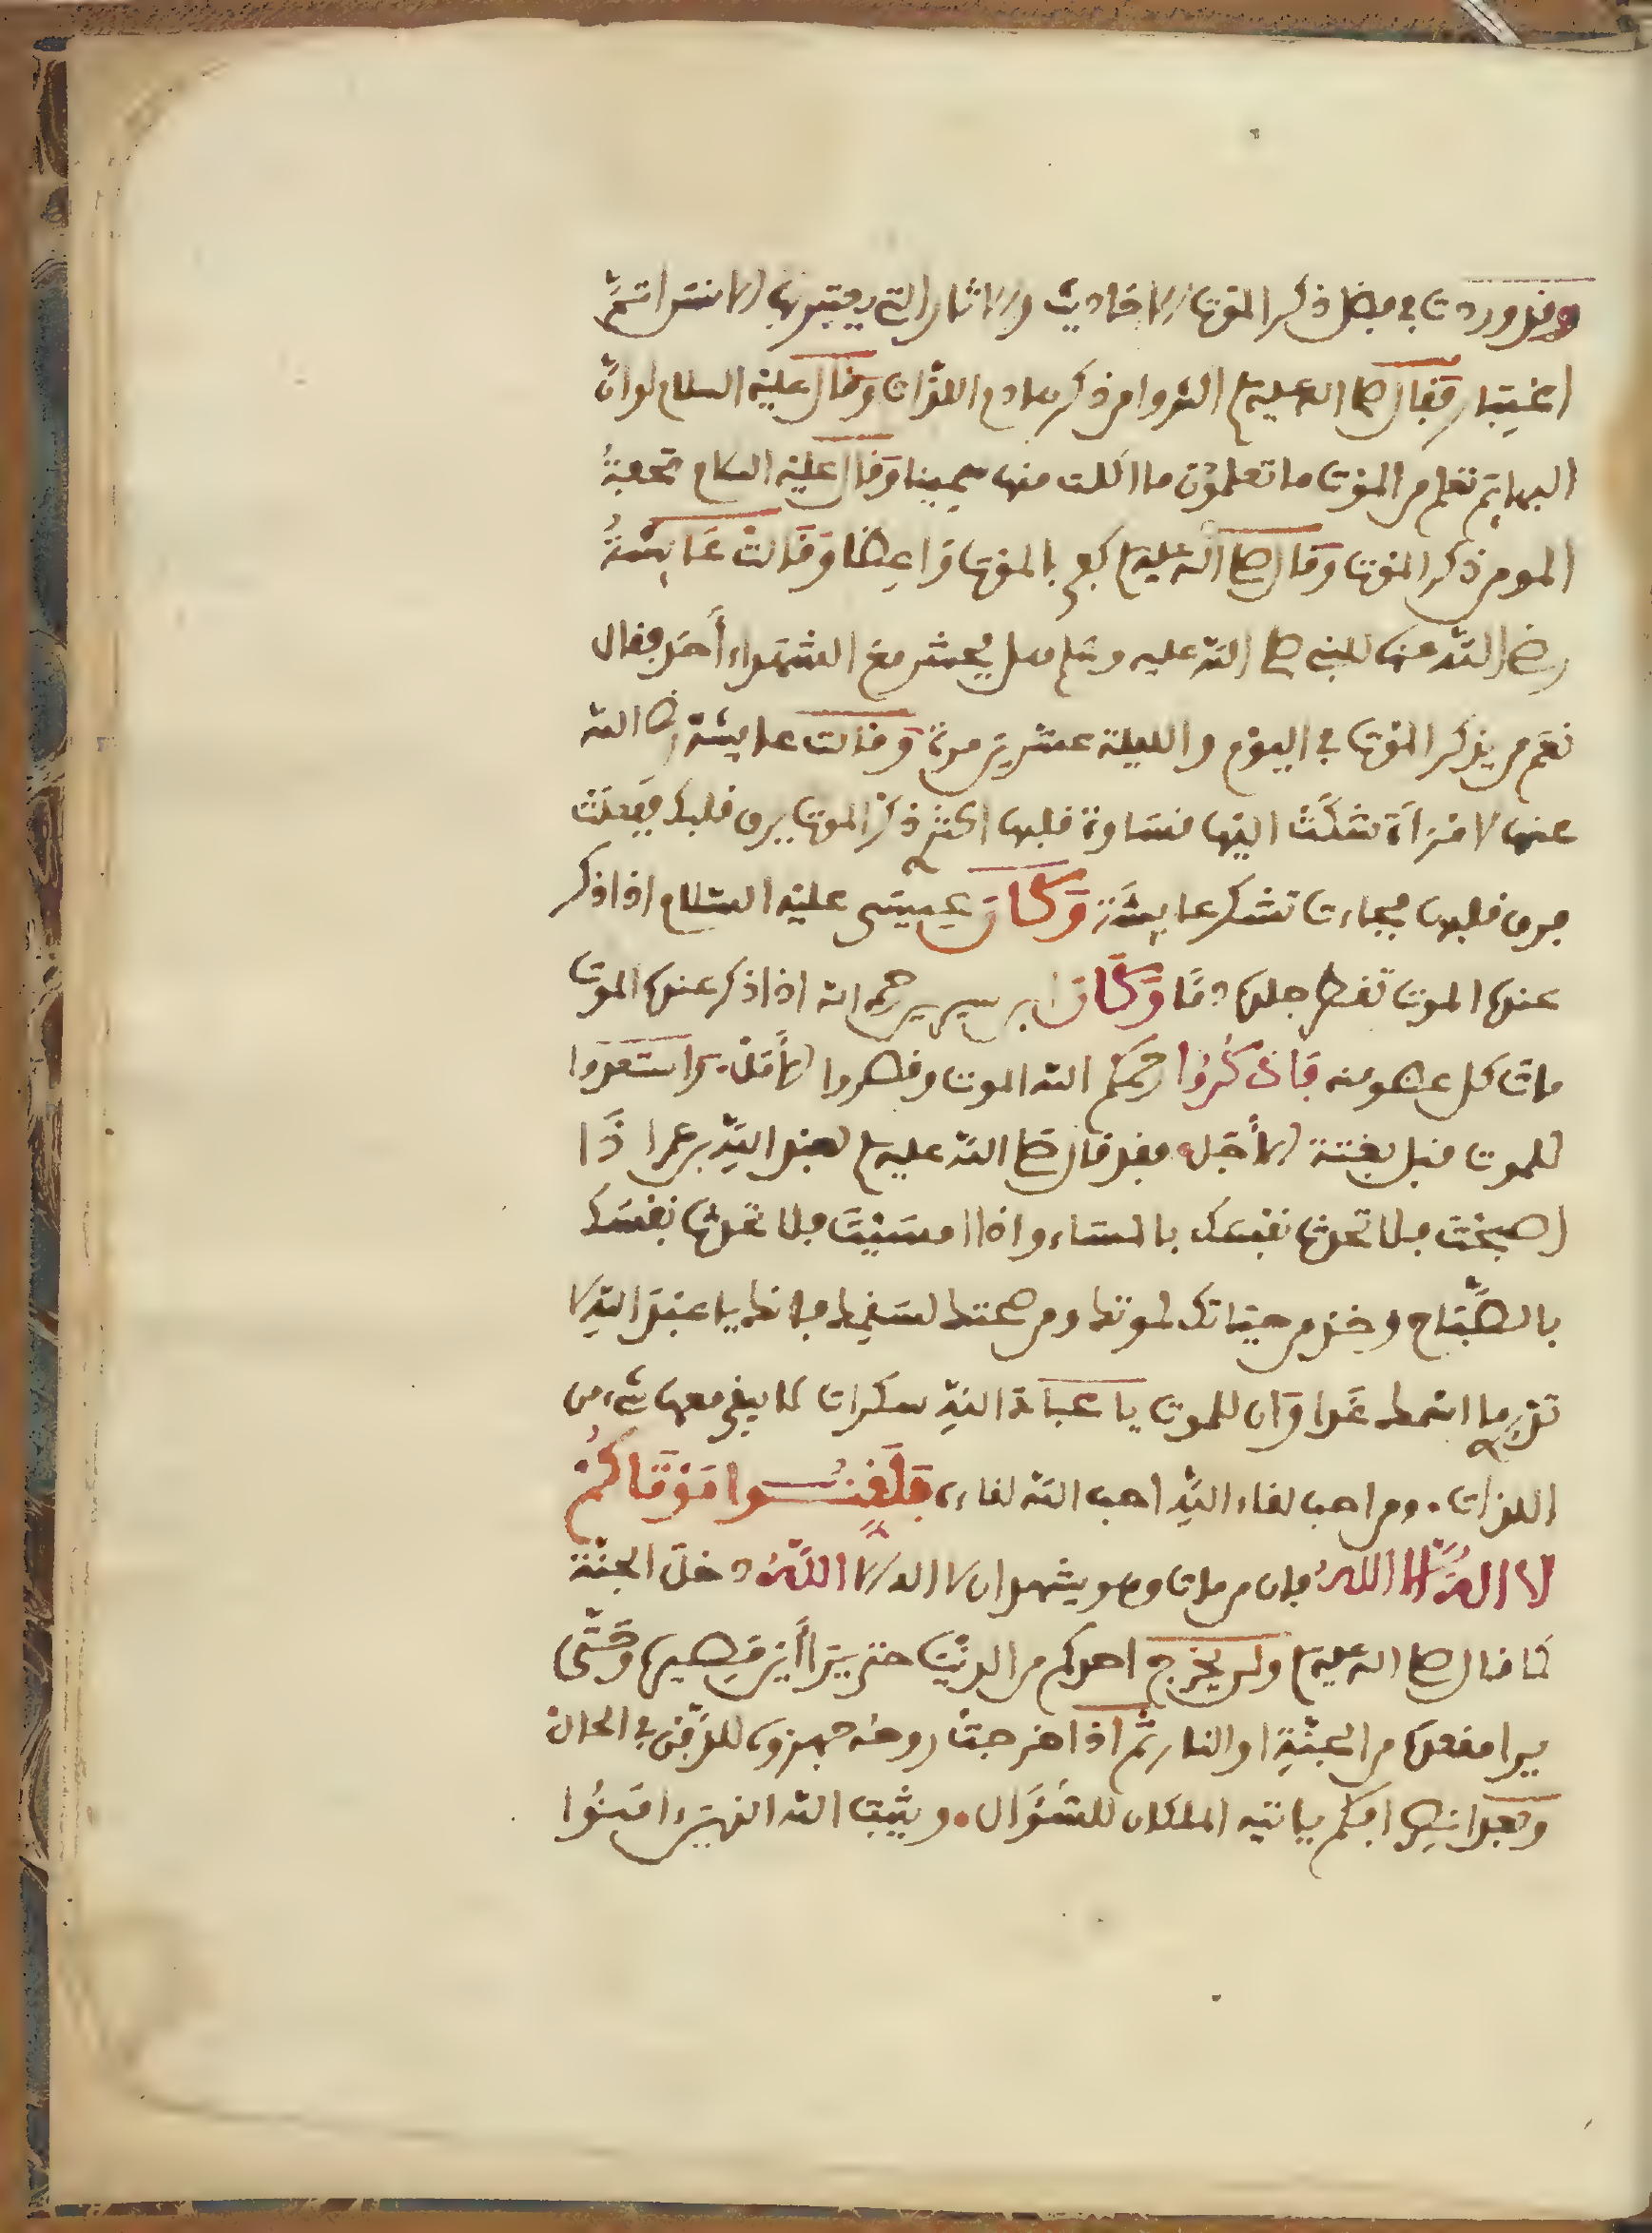 وقد وردت في فضل ذكر الموت الاحاديث والاثار التي يعتبر بها الانسان اتمّ
اعتبار فقال صلى الله عليه وسلم اكثروا من ذكر هادم اللذات وقال عليه السلام لو انّ
البهايم تعلم من الموت ما تعلمون ما اكلت منها سمينا وقال عليه السلام تحفة
المومن ذكر الموت وقال صلى الله عليه وسلم كفى بالموت واعظا وقالت عايشة
رضي الله عنها للنبي صلى الله عليه وسلم هل يحشر مع الشهداء أحد فقال
نعم من يذكر الموت في اليوم والليلة عشرين مرة وقالت عايشة رضي الله
عنها لامرأة شكت اليها قساوة قلبها اكثر ذكر الموت يرق قلبك ففعلت
فرق قلبها فجاءت تشكر عايشة وكان عيسى عليه السلام اذا ذكر
عنده الموت تقطر جلده دما وكان ابن سيرين رحمه الله اذا ذكر عنده الموت
مات كل عضو منه فاذكروا رحمكم الله الموت وقصروا الأمل واستعدوا
للموت قبل بغتة الأجل فقد قال صلى الله عليه وسلم لعبد الله بن عمر اذا
اصبحت فلا تحدث نفسك بالمساء واذا امسيت فلا تحدث نفسك
بالصّباح وخذ من حياتك لموتك ومن صحتك لسقمك فانك يا عبد الله لا
تدري ما اسمك غدا وان للموت يا عباد الله سكرات لا يبقى معها شيء من
اللذات. ومن احب لقاء الله احب الله لقاءه فلقنوا موتاكم
لا اله الا الله فان من مات وهو يشهد ان لا اله الا الله دخل الجنّة
كما قال صلى الله عليه وسلم ولن يخرج احدكم من الدنيا حتى يرا أين مصيره وحتّى
يرا مقعده من الجنّة او النار ثمّ اذا خرجت روحه جهزوه للدفن في الحال
وبعد انصرافكم ياتيه الملكان للسّؤال. ويثبت الله الذين ءامنوا